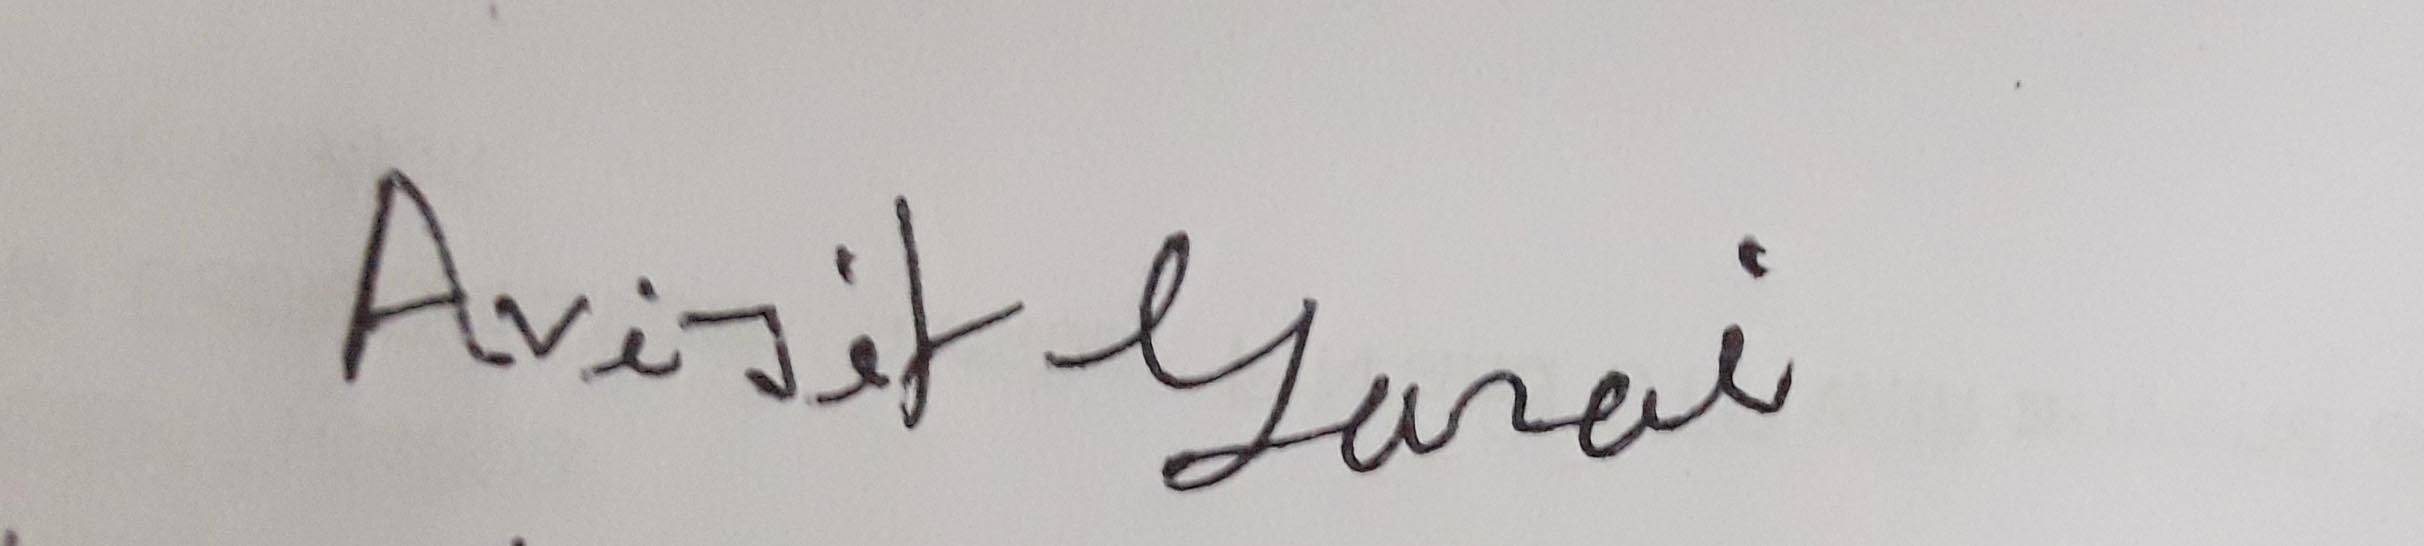 Avijit Garai